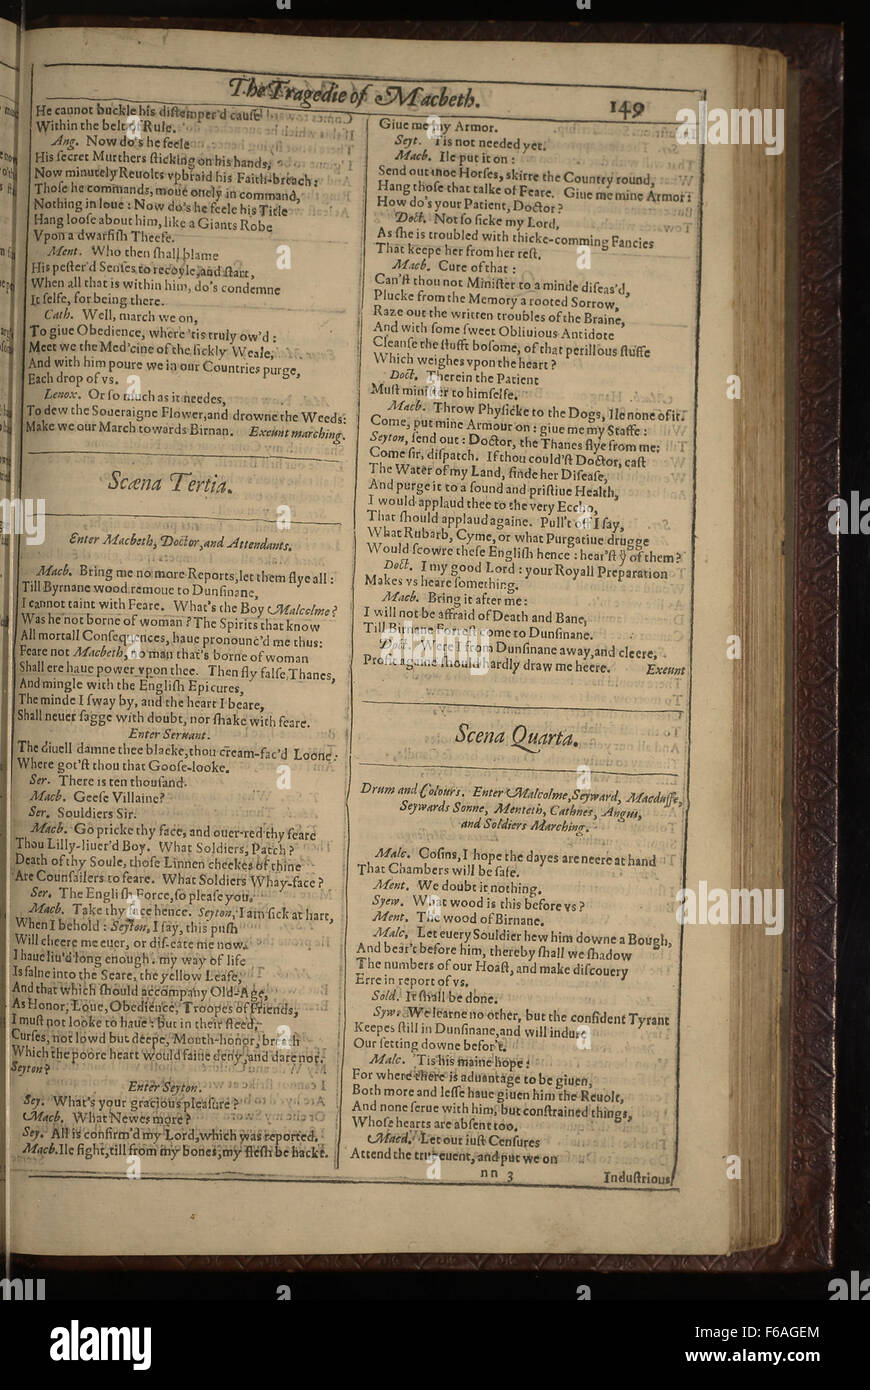 The Tragedie of Macbeth. 149
He cannot buckle his distemper'd cause
Within the belt of Rule.
Ang. Now do's he feele
His secret Murthers sticking on his hands,
Now minutely Reuolts vpbraid his Faith-breach:
Those he commands, moue onely in command,
Nothing in loue: Now do's he feele his Title
Hang loose about him, like a Giants Robe
Vpon a dwarfish Theefe.
Ment. Who then shall blame
His pester'd Senses to recoyle, and start,
When all that is within him, do's condemne
It selfe, for being there.
Cath. Well, march we on,
To giue Obedience, where 'tis truly ow'd:
Meet we the Med'cine of the sickly Weale,
And with him poure we in our Countries purge,
Each drop of vs.
Lenox. Or so much as it needes,
To dew the Soueraigne Flower, and drowne the Weeds:
Make we our March towards Birnan. Exeunt marching.
Scæna Tertia.
Enter Macbeth, Doctor, and Attendants.
Macb. Bring me no more Reports, let them flye all:
Till Byrnane wood remoue to Dunsinane,
I cannot taint with Feare. What's the Boy Malcolme?
Was he not borne of woman? The Spirits that know
All mortall Consequences, haue pronounc'd me thus:
Feare not Macbeth, no man that's borne of woman
Shall ere haue power vpon thee. Then fly false Thanes,
And mingle with the English Epicures,
The minde I sway by, and the heart I beare,
Shall neuer sagge with doubt, nor shake with feare.
Enter Seruant.
The diuell damne thee blacke, thou cream-fac'd Loone:
Where got'st thou that Goose-looke.
Ser. There is ten thousand.
Macb. Geese Villaine?
Ser. Souldiers Sir.
Macb. Go pricke thy face, and ouer-red thy feare
Thou Lilly-liuer'd Boy. What Soldiers, Patch?
Death of thy Soule, those Linnen cheekes of thine
Are Counsailers to feare. What Soldiers Whay-face?
Ser. The English Force, so please you.
Macb. Take thy face hence. Seyton, I am sick at hart,
When I behold: Seyton, I say, this push
Will cheere me euer, or dis-eate me now.
I haue liu'd long enough: my way of life
Is falne into the Seare, the yellow Leafe,
And that which should accompany Old-Age,
As Honor, Loue, Obedience, Troopes of Friends,
I must not looke to haue: but in their steed,
Curses, not lowd but deepe, Mouth-honor, breath
Which the poore heart would faine deny, and dare not.
Seyton?
Enter Seyton.
Sey. What's your gracious pleasure?
Macb. What Newes more?
Sey. All is confirm'd my Lord, which was reported.
Macb. Ile fight, till from my bones, my flesh be hackt.
Giue me my Armor.
Seyt. 'Tis not needed yet.
Macb. Ile put it on:
Send out moe Horses, skirre the Country round,
Hang those that talke of Feare. Giue me mine Armor:
How do's your Patient, Doctor?
Doct. Not so sicke my Lord,
As she is troubled with thicke-comming Fancies
That keepe her from her rest.
Macb. Cure of that:
Can'st thou not Minister to a minde diseas'd,
Plucke from the Memory a rooted Sorrow,
Raze out the written troubles of the Braine,
And with some sweet Obliuious Antidote
Cleanse the stufft bosome, of that perillous stuffe
Which weighes vpon the heart?
Doct. Therein the Patient
Must minister to himselfe.
Macb. Throw Physicke to the Dogs, Ile none of it.
Come, put mine Armour on: giue me my Staffe:
Seyton, send out: Doctor, the Thanes flye from me:
Come sir, dispatch. If thou could'st Doctor, cast
The Water of my Land, finde her Disease,
And purge it to a sound and pristiue Health,
I would applaud thee to the very Eccho,
That should applaud againe. Pull't off I say,
What Rubarb, Cyme, or what Purgatiue drugge
Would scowre these English hence: hear'st ÿ of them?
Doct. I my good Lord: your Royall Preparation
Makes vs heare something.
Macb. Bring it after me:
I will not be affraid of Death and Bane,
Till Birnane Forrest come to Dunsinane.
Doct. Were I from Dunsinane away, and cleere,
Profit againe should hardly draw me heere. Exeunt
Scena Quarta.
Drum and Colours. Enter Malcolme, Seyward, Macduffe,
Seywards Sonne, Menteth, Cathnes, Angus,
and Soldiers Marching.
Malc. Cosins, I hope the dayes are neere at hand
That Chambers will be safe.
Ment. We doubt it nothing.
Syew. What wood is this before vs?
Ment. The wood of Birnane.
Malc. Let euery Souldier hew him downe a Bough,
And bear't before him, thereby shall we shadow
The numbers of our Hoast, and make discouery
Erre in report of vs.
Sold. It shall be done.
Syw. We learne no other, but the confident Tyrant
Keepes still in Dunsinane, and will indure
Our setting downe befor't.
Malc. 'Tis his maine hope:
For where there is aduantage to be giuen,
Both more and lesse haue giuen him the Reuolt,
And none serue with him, but constrained things,
Whose hearts are absent too.
Macd. Let our iust Censures
Attend the true euent, and put we on
nn 3 Industrious
alamy
alamy
Image ID: F6AGEM
www.alamy.com